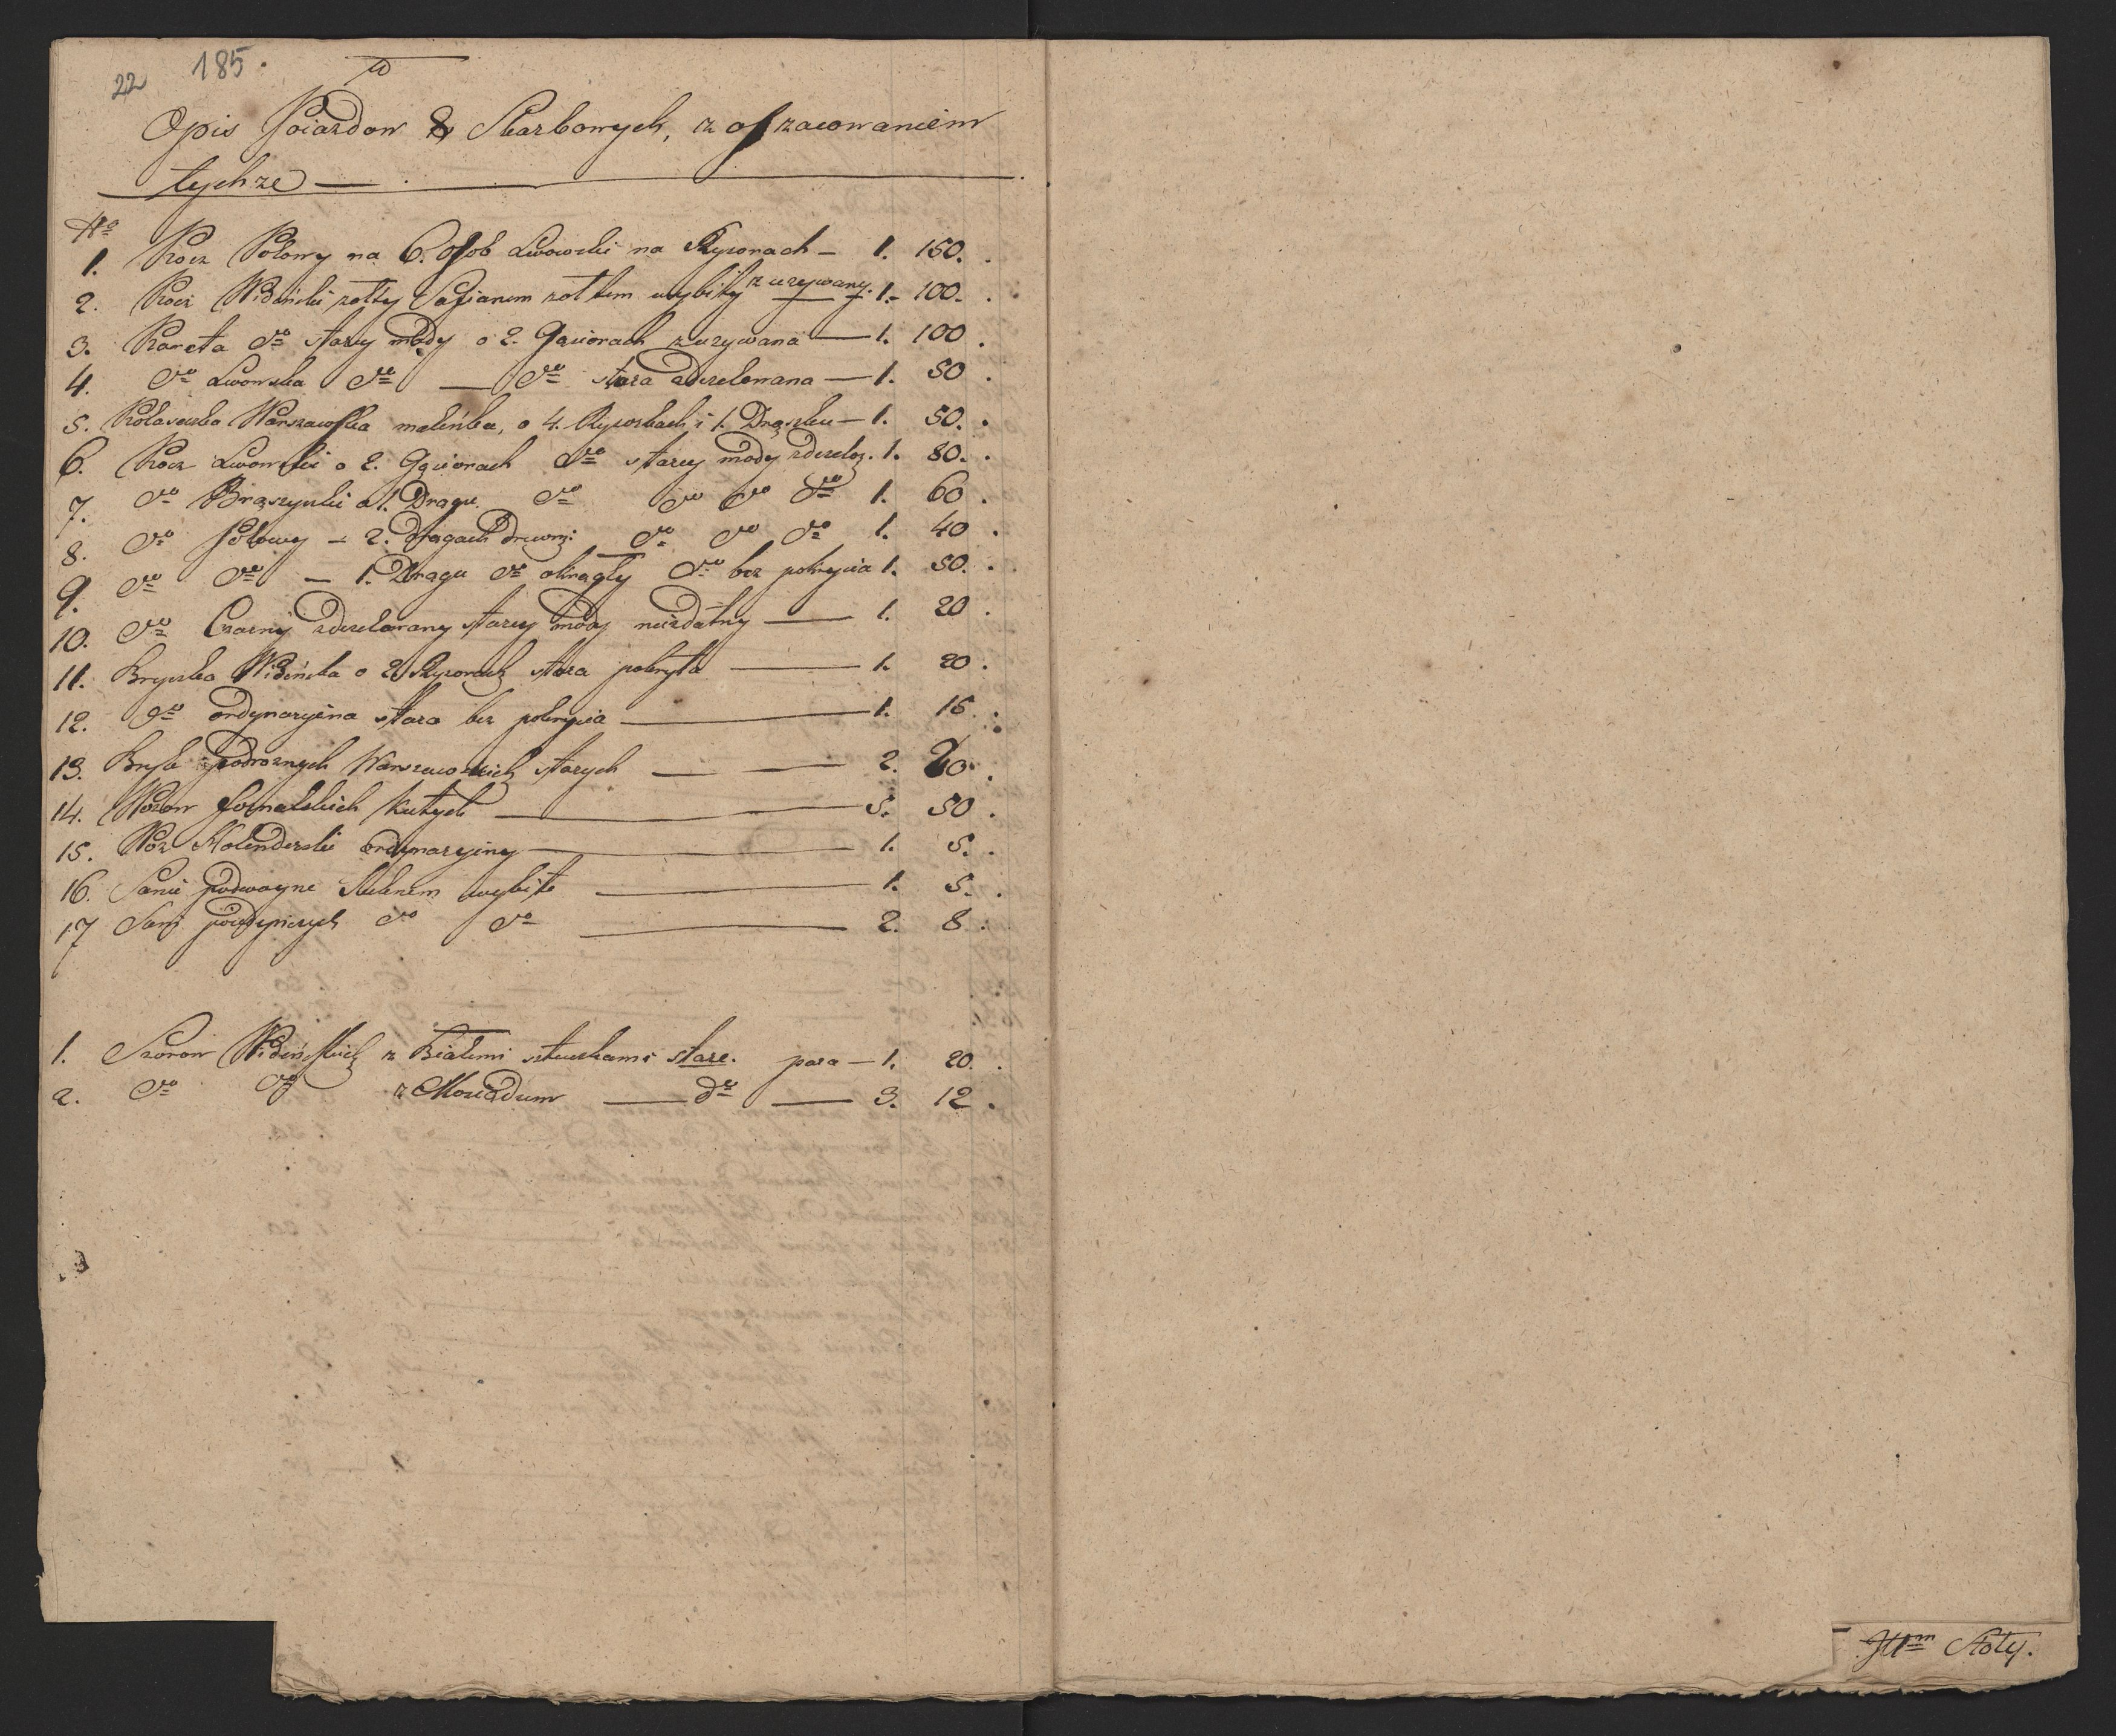 22 185.
Opis Poiazdow & Skarbowych, z oszacowaniem
tychże
No
1. Kocz Polowy na 6. Osob Lwowski na Ryzorach — 1. 150.
2. Kocz Widenski zołty Safianem zołtem wybity zuzywany. 1. 100.
3. Kareta do starey mody o 2. Gąsiorach zuzywana — 1. 100.
4. do Lwowska do — do stara zdezelowana — 1. 50.
5. Kolaseczka Warszawska maleńka, o 4. Ryzorkach i 1. Drążku — 1. 50.
6. Kocz Lwowski o 2. Gąsiorach do starey mody zdezeloz. 1. 80.
7. do o 1. Drągu do do do do 1. 60.
8. do Polowy — 2. Drągach Drewn: do do do 1. 40.
9. do do — 1. Drągu do okrągły do bez pokrycia 1. 50.
10. do Czarny zdezelowany starey mody niezdatny — 1. 20.
11. Bryczka Wideńska o 2. Ryzorach stara pokryta — 1. 20.
12. do ordynaryina stara bez pokrycia — 1. 15.
13. Bryk podroznych Warszawskich starych — 2. 20.
14. Wozow fornalskich kutych — 5. 50.
15. Woz Holenderski ordynaryiny — 1. 5.
16. Sanie podwoyne Suknem wybite — 1. 5.
17 Sani poiedynczych do do — 2. 8.
1. Szorow Wideńskich z Białemi sztuczkami stare. para — 1. 20.
2. do do z Mosiądzem — do — 3. 12.
Stoły.